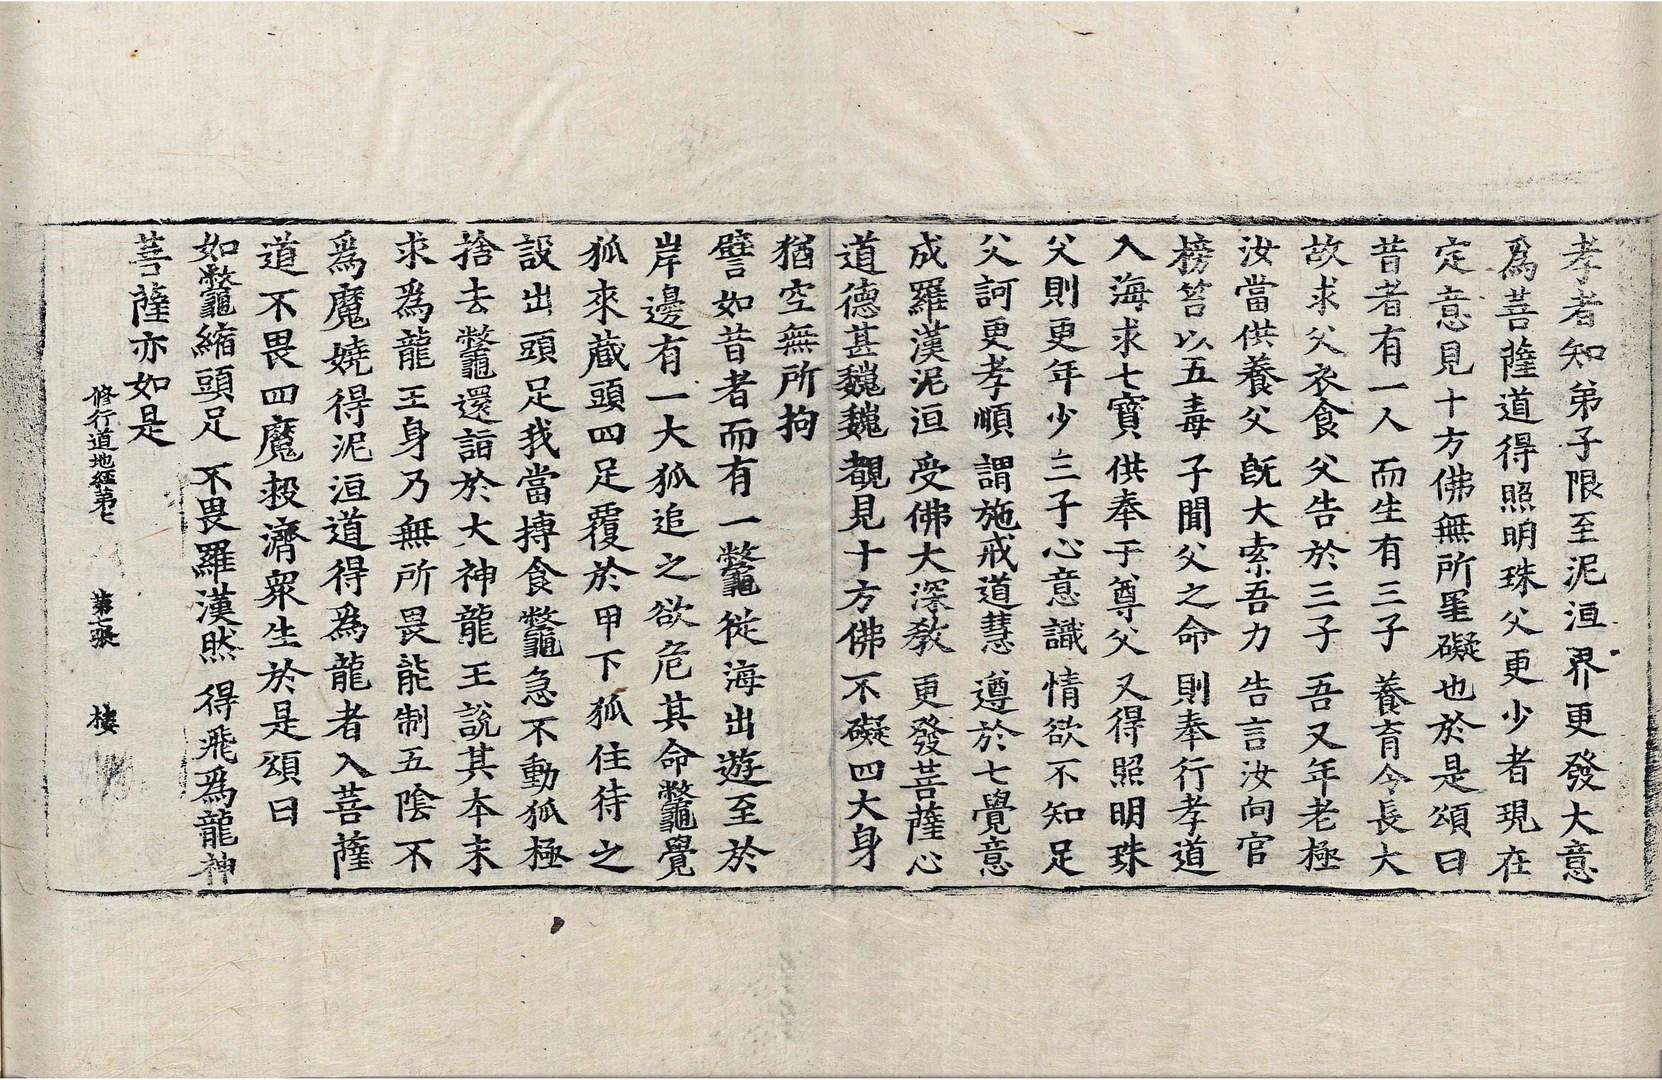 孝者知弟子限至泥洹界更發大意
爲菩薩道得照明珠父更少者現在
定意見十方佛無所罣礙也於是頌曰
昔者有一人 而生有三子 養育令長大
故求父衣食 父告於三子 吾又年老極
汝當供養父 旣大索吾力 告言汝向官
榜笞以五毒 子聞父之命 則奉行孝道
入海求七寶 供奉于尊父 又得照明珠
父則更年少 三子心意識 情欲不知足
父訶更孝順 謂施戒道慧 遵於七覺意
成羅漢泥洹 受佛大深教 更發菩薩心
道德甚巍巍 覩見十方佛 不礙四大身
猶空無所拘
譬如昔者而有一鼈從海出遊至於
岸邊有一大狐追之欲危其命鼈覺
狐來蔵頭四足覆於甲下狐住待之
設出頭足我當摶食鼈急不動狐極
捨去鼈還詣於大神龍王說其本末
求爲龍王身乃無所畏能制五陰不
爲魔嬈得泥洹道得爲龍者入菩薩
道不畏四魔救濟衆生於是頌曰
如鼈縮頭足 不畏羅漢然 得飛爲龍神
菩薩亦如是
修行道地經第七 第七張 樓